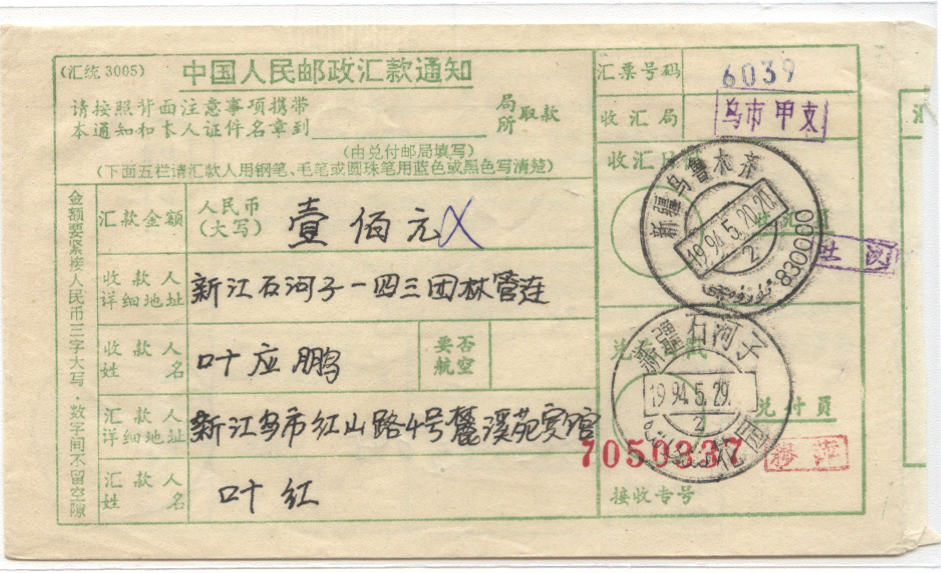 (汇统 3005)
中国人民邮政汇款通知
请按照背面注意事项携带
本通知和本人证件名章到
局
所 取款
(由兑付邮局填写)
(下面五栏请汇款人用钢笔、毛笔或圆珠笔用蓝色或黑色写清楚)
汇票号码
6039
收汇局
乌市 甲支
收汇日
新疆乌鲁木齐
1994.5.20.20.
2
830000
金额要紧接人民币三字大写·数字间不留空隙
汇款金额
人民币
(大写)
壹佰元
收款人
详细地址
新江石河子一四三团林管连
收款人
姓名
叶应鹏
要否
航空
汇款人
详细地址
新江乌市红山路4号麓溪苑宾馆
汇款人
姓名
叶红
新疆石河子
1994.5.29.
2
花园
兑付员
7050337
接收专号
汇